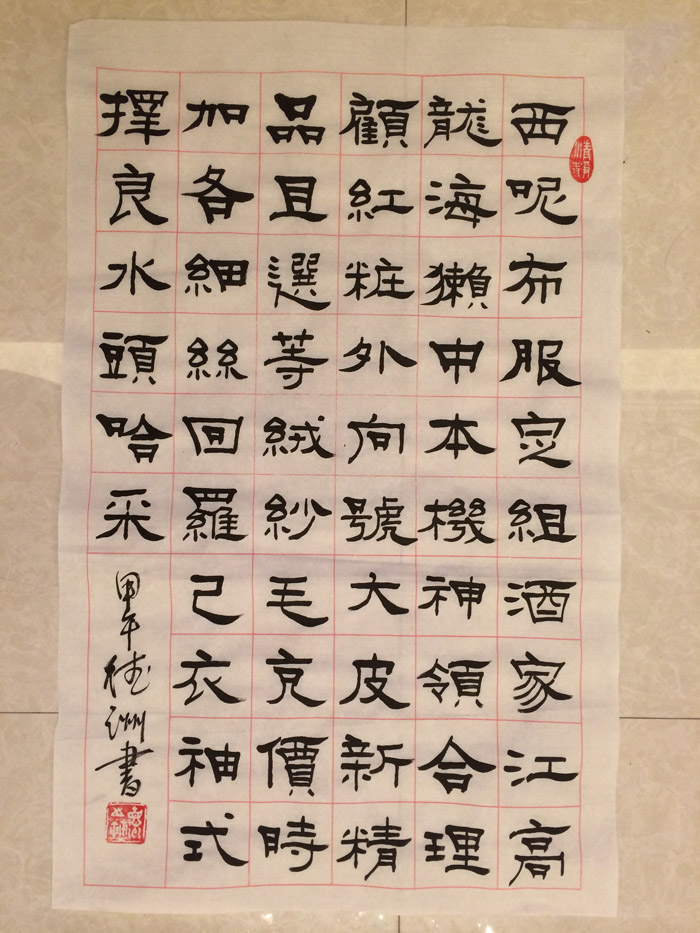 西呢布服定組酒家江高
龍海獺中本機神領合理
顧紅粧外向號大皮新精
品且選等絨紗毛克價時
加各細絲回羅己衣袖式
擇良水頭哈采
甲午 洲書